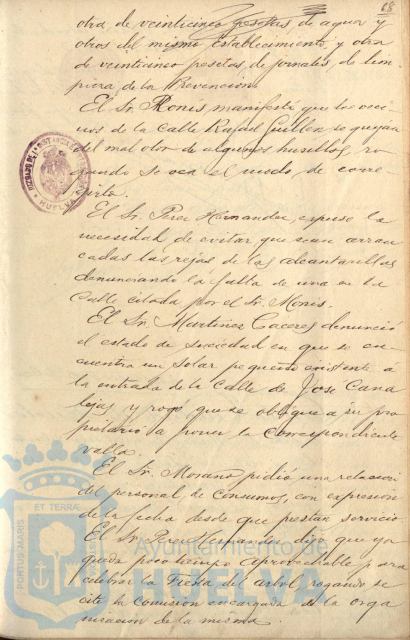 68
otra de veinticinco pesetas, de agua y
otros del mismo establecimiento y otra
de veinticinco pesetas, de jornales, de lim
pieza de la Prevencion.
El Sr. Monis manifestó que los veci
nos de la Calle Rafael Guillen se quejan
del mal olor de algunos husillos, ro
gando se vea el modo de corre
girlo.
El Sr. Perez Hernandez, expuso la
necesidad de evitar que sean arran
cadas las rejas de las alcantarillas
denunciando la falta de una en la
Calle citada por el Sr. Monis.
El Sr. Martinez Caceres denunció
el estado de suciedad en que se en
cuentra un solar pequeño existente á
la entrada de la Calle de Jose Cana
lejas, y rogó que se obligue a su pro
pietario a poner la correspondiente
valla.
El Sr. Morano pidió una relacion
del personal de Consumos, con expresion
de la fecha desde que prestan servicio
El Sr. Perez Hernandez dijo que ya
queda poco tiempo aprovechable para
celebrar la Fiesta del Arbol, rogando se
cite la comision encargada de la orga
nizacion de la misma.
HUELVA
PORTUS MARIS
ET TERRAE
Ayuntamiento de
HUELVA